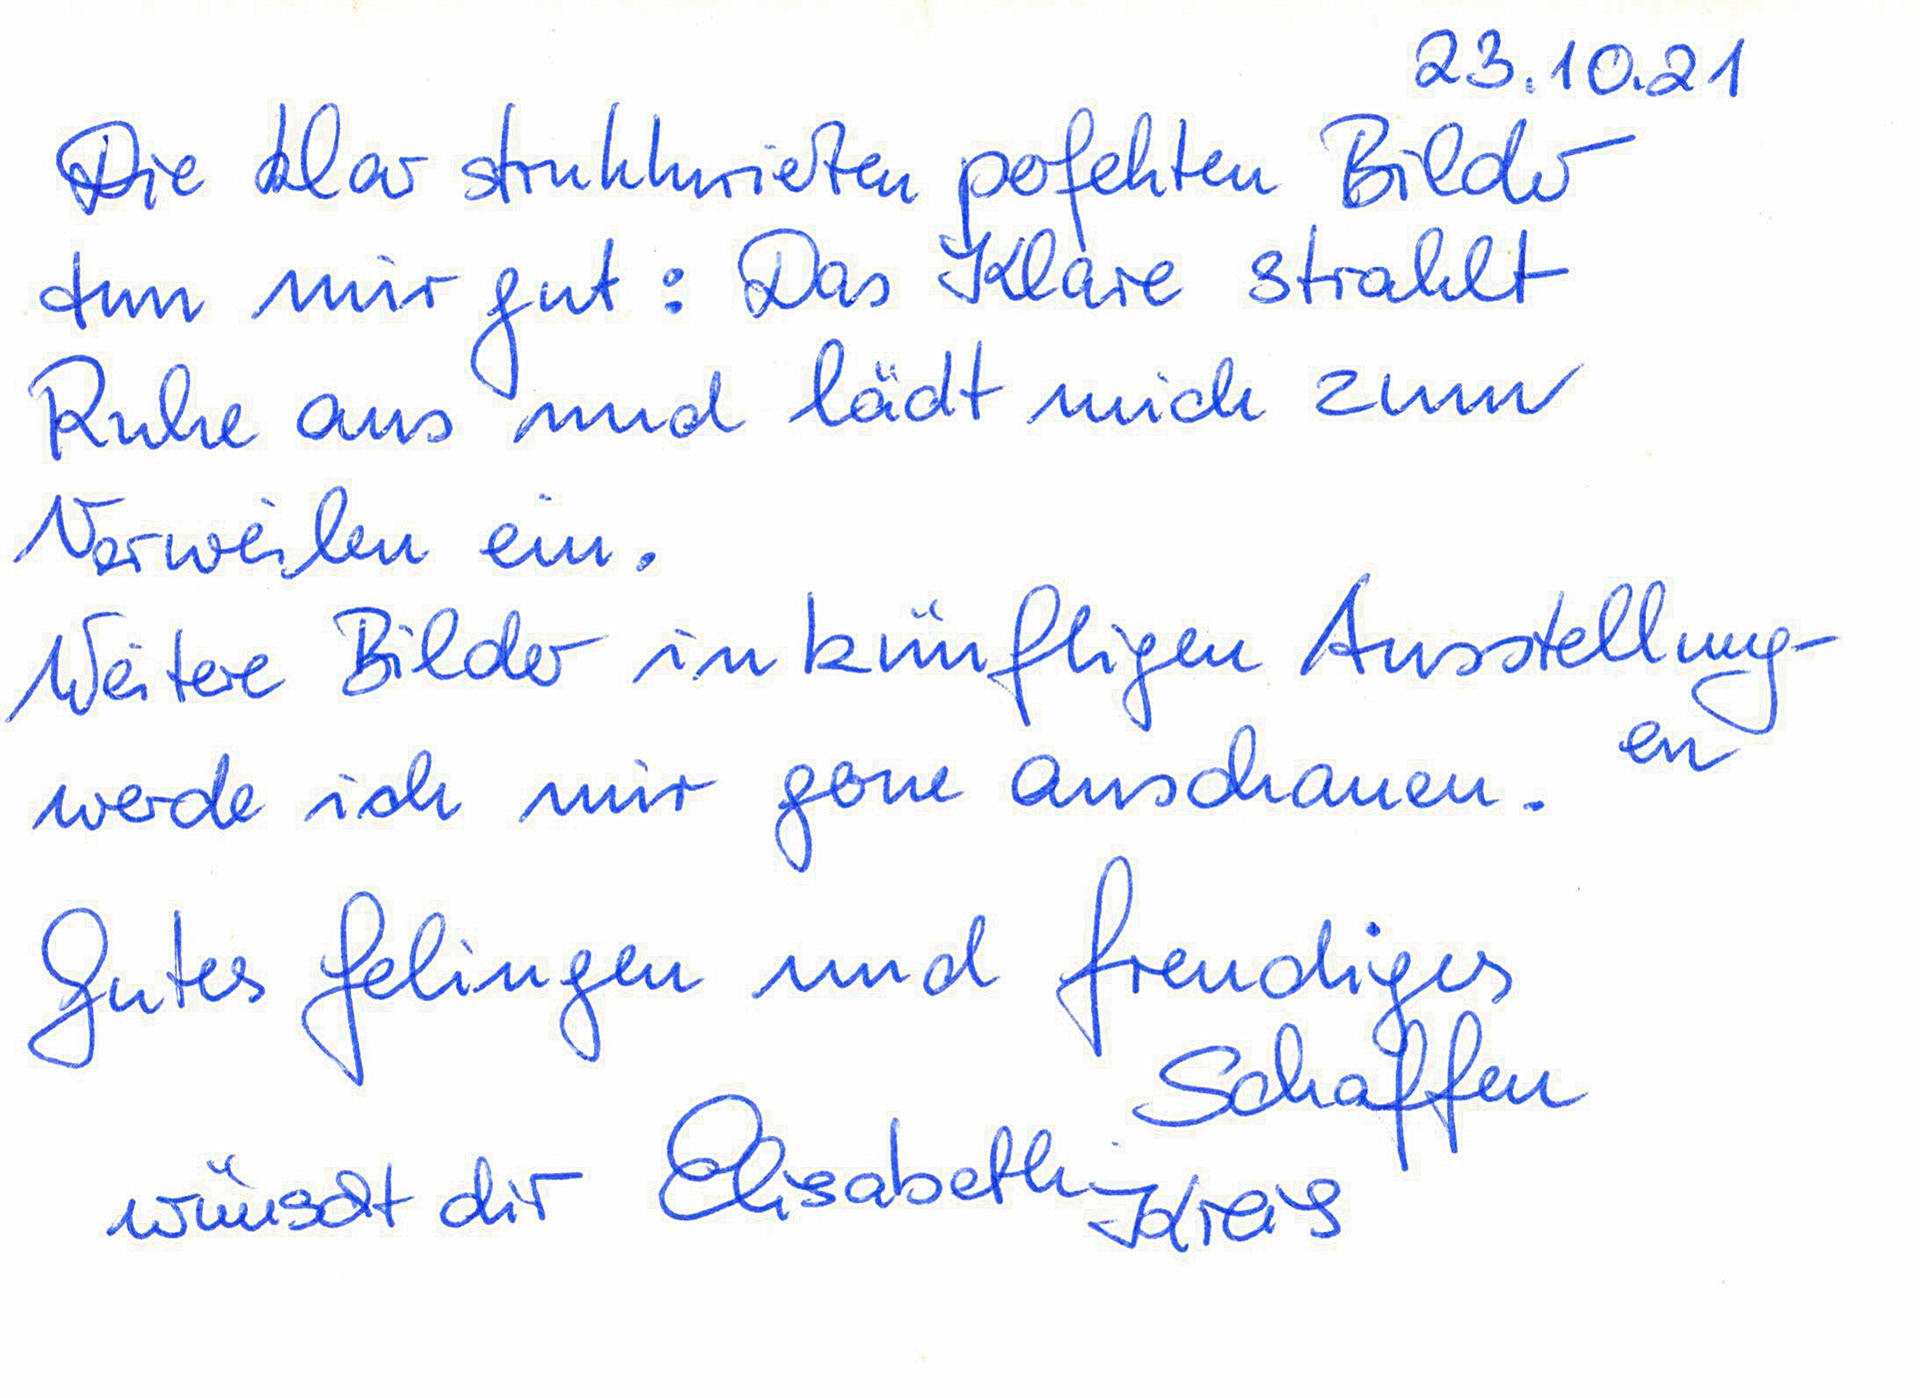 23.10.21
Die klar strukturierten perfekten Bilder
tun mir gut: Das Klare strahlt
Ruhe aus und lädt mich zum
Verweilen ein.
Weitere Bilder in künftigen Ausstellung-
en
werde ich mir gerne anschauen.
Gutes Gelingen und freudiges
Schaffen
wünscht dir Elisabeth Kreis